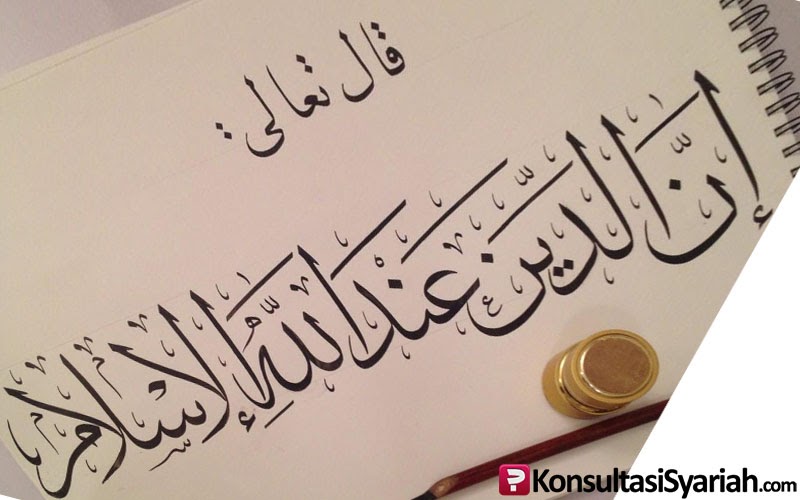 قال تعالى :
إنّ الدّين عند اللّٰه الإسلام
KonsultasiSyariah.com